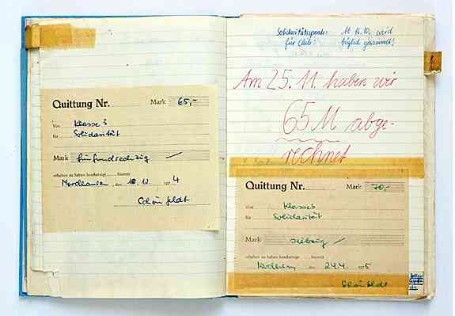 Quittung Nr.
Mark 65,-
Von Klasse 5
für Solidarität
Mark fünfundsechzig
erhalten zu haben bescheinigt
Nordhausen, den 10.12. 1974
Solidaritätsspende
für Chile:
täglich gesammelt!
Am 25. 11. haben wir
65 M abge-
rechnet
Quittung Nr.
Mark 70,-
Von Klasse 5
für Solidarität
Mark siebzig
erhalten zu haben bescheinigt
den 24.4.